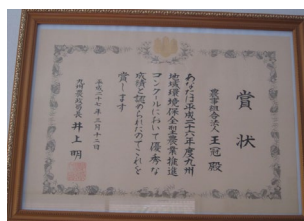 賞状
農事組合法人 王冠 殿
あなたは平成二十六年度九州
地域環境保全型農業推進
コンクールにおいて優秀な
成績と認められたのでこれを
賞します
平成二十七年三月十二日
九州農政局長 井上 明